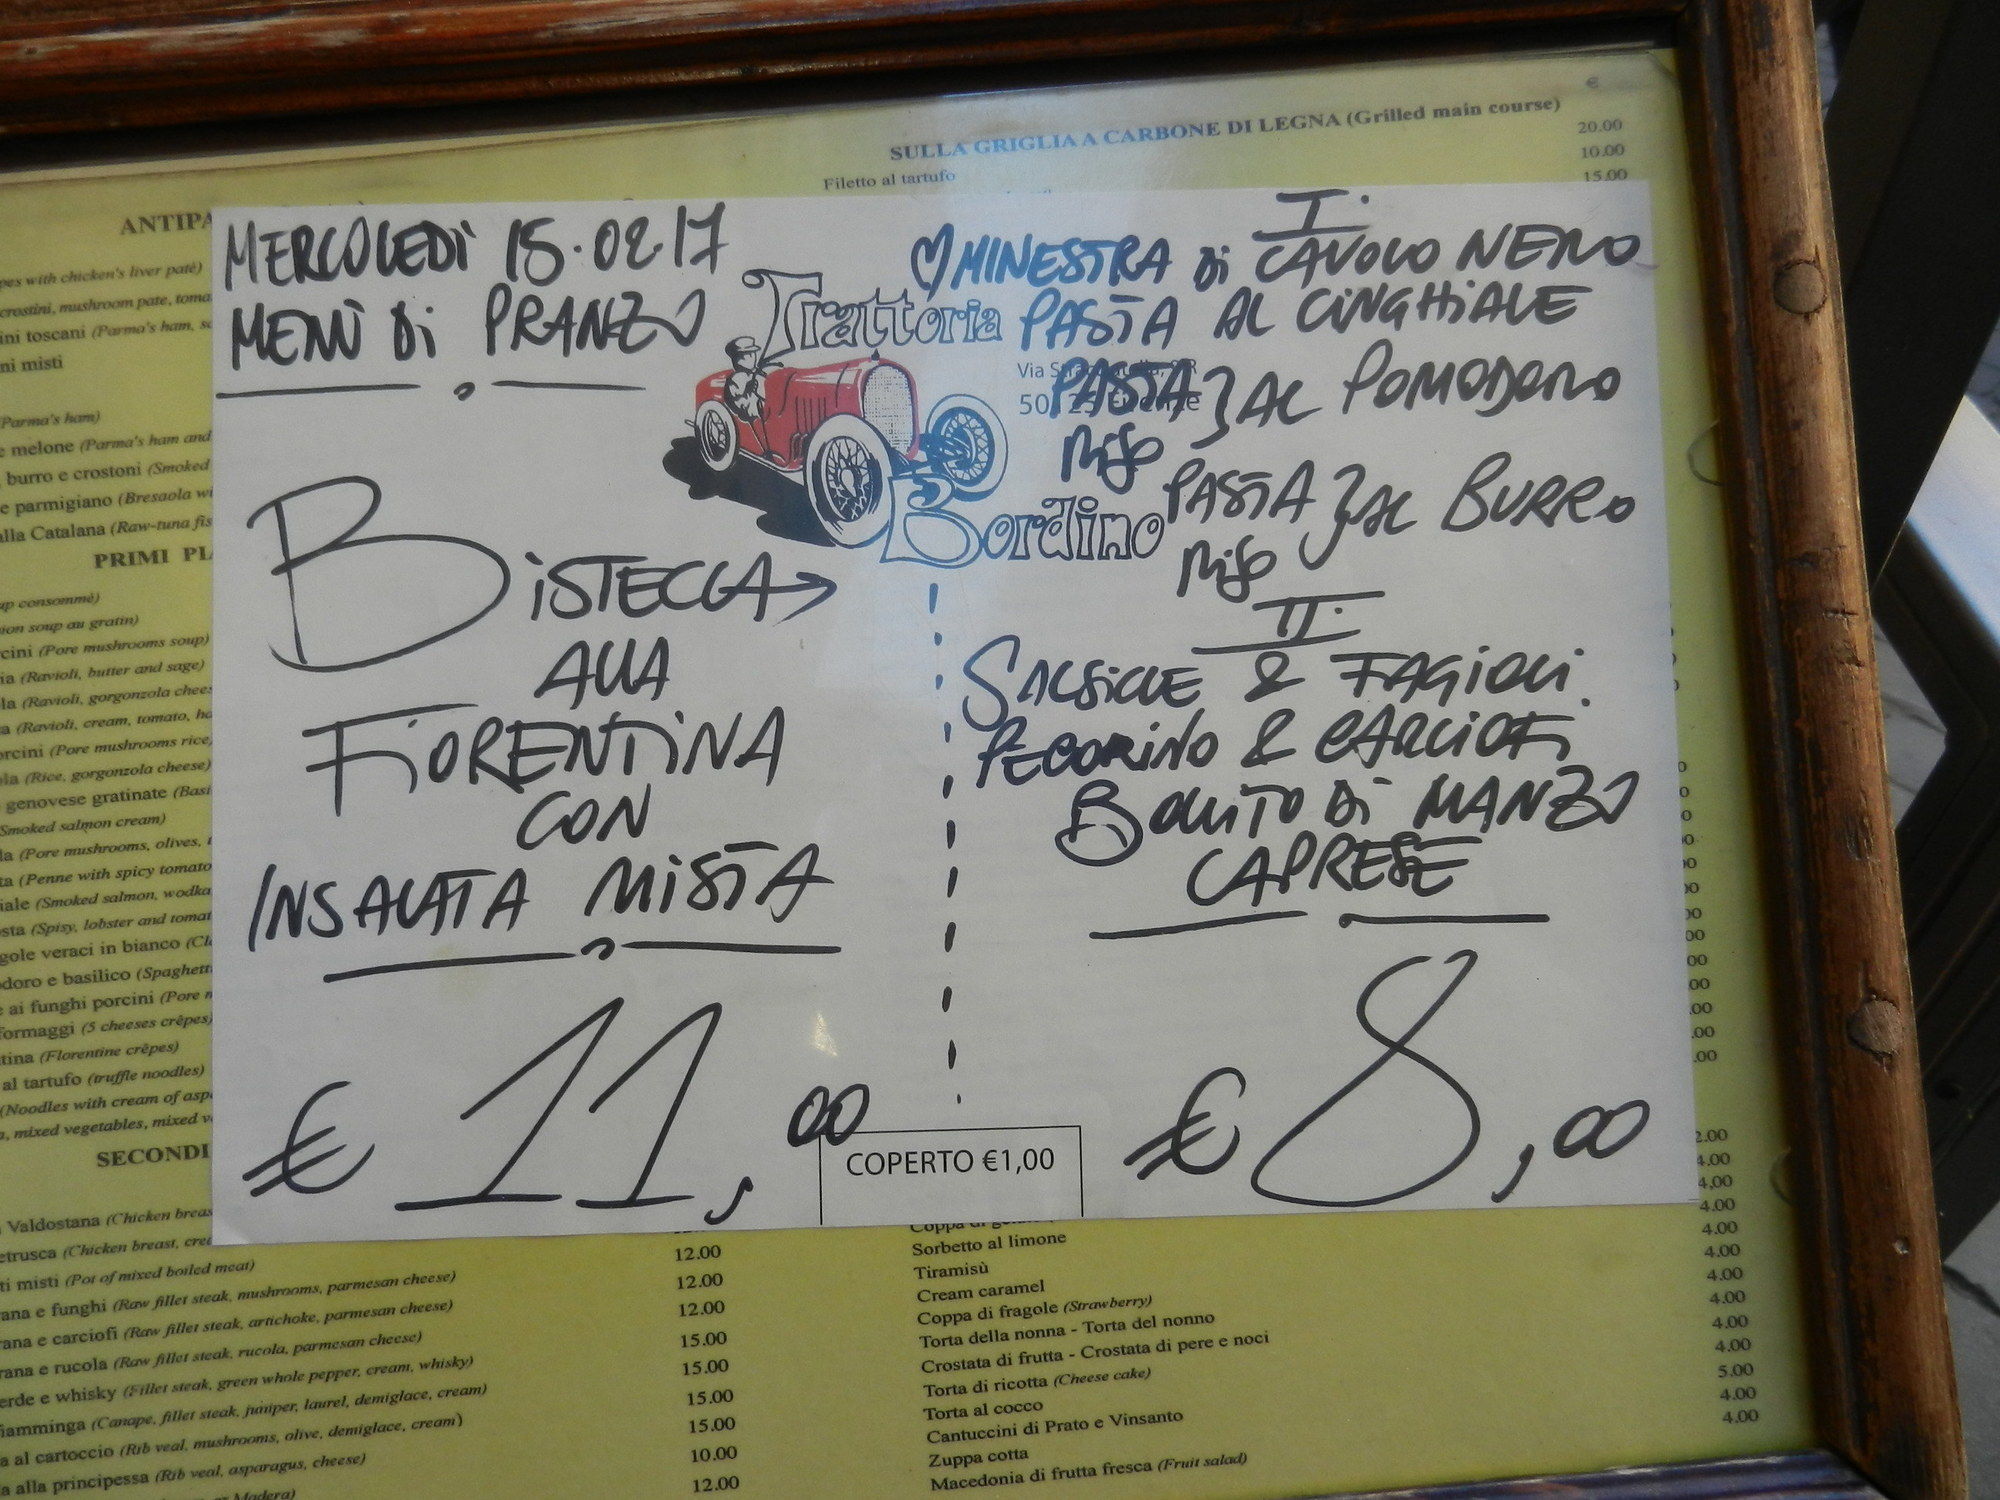 €
SULLA GRIGLIA A CARBONE DI LEGNA (Grilled main course)
Filetto al tartufo
20.00
10.00
15.00
ANTIPA
pes with chicken's liver patè)
crostini, mushroom pate, toma
ini toscani (Parma's ham, sc
ni misti
(Parma's ham)
e melone (Parma's ham and
burro e crostoni (Smoked
e parmigiano (Bresaola wi
alla Catalana (Raw-tuna fis
PRIMI PI
up consommè)
ion soup au gratin)
cini (Pore mushrooms soup)
ia (Ravioli, butter and sage)
la (Ravioli, gorgonzola chees
a (Ravioli, cream, tomato, ha
orcini (Pore mushrooms rice)
ola (Rice, gorgonzola cheese)
genovese gratinate (Basi
Smoked salmon cream)
la (Pore mushrooms, olives, t
ta (Penne with spicy tomato
iale (Smoked salmon, wodka
osta (Spisy, lobster and tomat
gole veraci in bianco (Cl
odoro e basilico (Spaghett
e ai funghi porcini (Pore m
formaggi (5 cheeses crêpes)
tina (Florentine crêpes)
al tartufo (truffle noodles)
(Noodles with cream of asp
a, mixed vegetables, mixed v
SECONDI
MERCOLEDÌ 15.02.17
MENÙ Di PRANZO
Trattoria
Bordino
BiSTECCA
ALLA
FiORENTiNA
CON
INSALATA MiSTA
€ 11,00
COPERTO €1,00
I.
MINESTRA Di CAVOLO NERO
PASTA AL CiNGHiALE
Via
50125 Firenze
PASTA } AL POMODORO
RiSO
PASTA } AL BURRO
RiSO
II.
SALSiCCE & FAGiOLi.
PECORiNO & CARCiOFi
BOLLiTO Di MANZO
CAPRESE
€ 8,00
Valdostana (Chicken breas
etrusca (Chicken breast, cre
ti misti (Pot of mixed boiled meat)
rana e funghi (Raw fillet steak, mushrooms, parmesan cheese)
rana e carciofi (Raw fillet steak, artichoke, parmesan cheese)
rana e rucola (Raw fillet steak, rucola, parmesan cheese)
erde e whisky (Fillet steak, green whole pepper, cream, whisky)
fiamminga (Canape, fillet steak, juniper, laurel, demiglace, cream)
a al cartoccio (Rib veal, mushrooms, olive, demiglace, cream)
a alla principessa (Rib veal, asparagus, cheese)
Madera)
12.00
12.00
12.00
15.00
15.00
15.00
15.00
10.00
12.00
Coppa di
Sorbetto al limone
Tiramisù
Cream caramel
Coppa di fragole (Strawberry)
Torta della nonna - Torta del nonno
Crostata di frutta - Crostata di pere e noci
Torta di ricotta (Cheese cake)
Torta al cocco
Cantuccini di Prato e Vinsanto
Zuppa cotta
Macedonia di frutta fresca (Fruit salad)
2.00
4.00
4,00
4.00
4.00
4.00
4.00
4.00
4.00
4.00
5.00
4.00
4.00